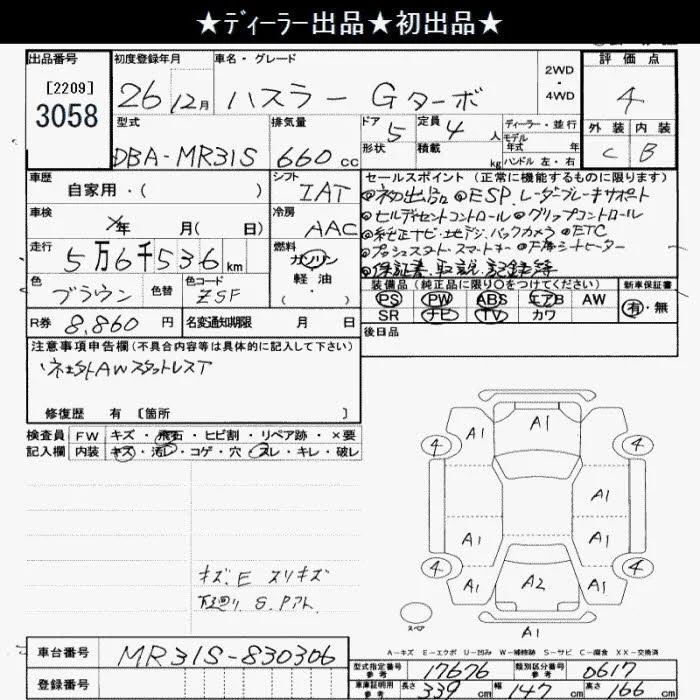 ★ディーラー出品★初出品★
出品番号
[2209]
3058
初度登録年月
26 12月
車名・グレード
ハスラー Gターボ
2WD
・
4WD
評価点
4
外装 内装
C B
型式
DBA-MR31S
排気量
660cc
ドア
5
定員
4人
形状
積載
kg
ディーラー・並行
モデル
年式 年
ハンドル 左・右
車歴
自家用・( )
シフト
IAT
車検
年 月( 日)
冷房
AAC
走行
5万6千536km
燃料
ガソリン
軽油
( )
色
ブラウン
色替
色コード
ZSF
R券 8,860円
名変通知期限 月 日
セールスポイント(正常に機能するものに限ります)
◎初出品◎ESP.レーダーブレーキサポート
◎ヒルディセントコントロール◎グリップコントロール
◎純正ナビ・地デジ.バックカメラ◎ETC
◎プッシュスタート・スマートキー◎F席シートヒーター
◎保証書.取説.記録簿
装備品(純正品に限り〇をつけてください)
PS PW ABS エアB AW
SR ナビ TV カワ
新車保証書
有・無
後日品
注意事項申告欄(不具合内容等は具体的に記入して下さい)
社外AWスタットレスT
修復歴 有 [箇所 ]
検査員
記入欄
FW キズ・飛石・ヒビ割・リペア跡・×要
内装 キズ・汚レ・コゲ・穴・スレ・キレ・破レ
キズ.E スリキズ
下廻り S.Pアト.
A1
A1 A1
4 4
A1
A1 A1
4 4
A1 A2 A1
スペア
A1
A-キズ E-エクボ U-凹み W-補修跡 S-サビ C-腐食 XX-交換済
車台番号
MR31S-830306
登録番号
型式指定番号
参考
17676
類別区分番号
参考
0617
車庫証明用
参考
長さ 339cm 幅 147cm 高さ 166cm